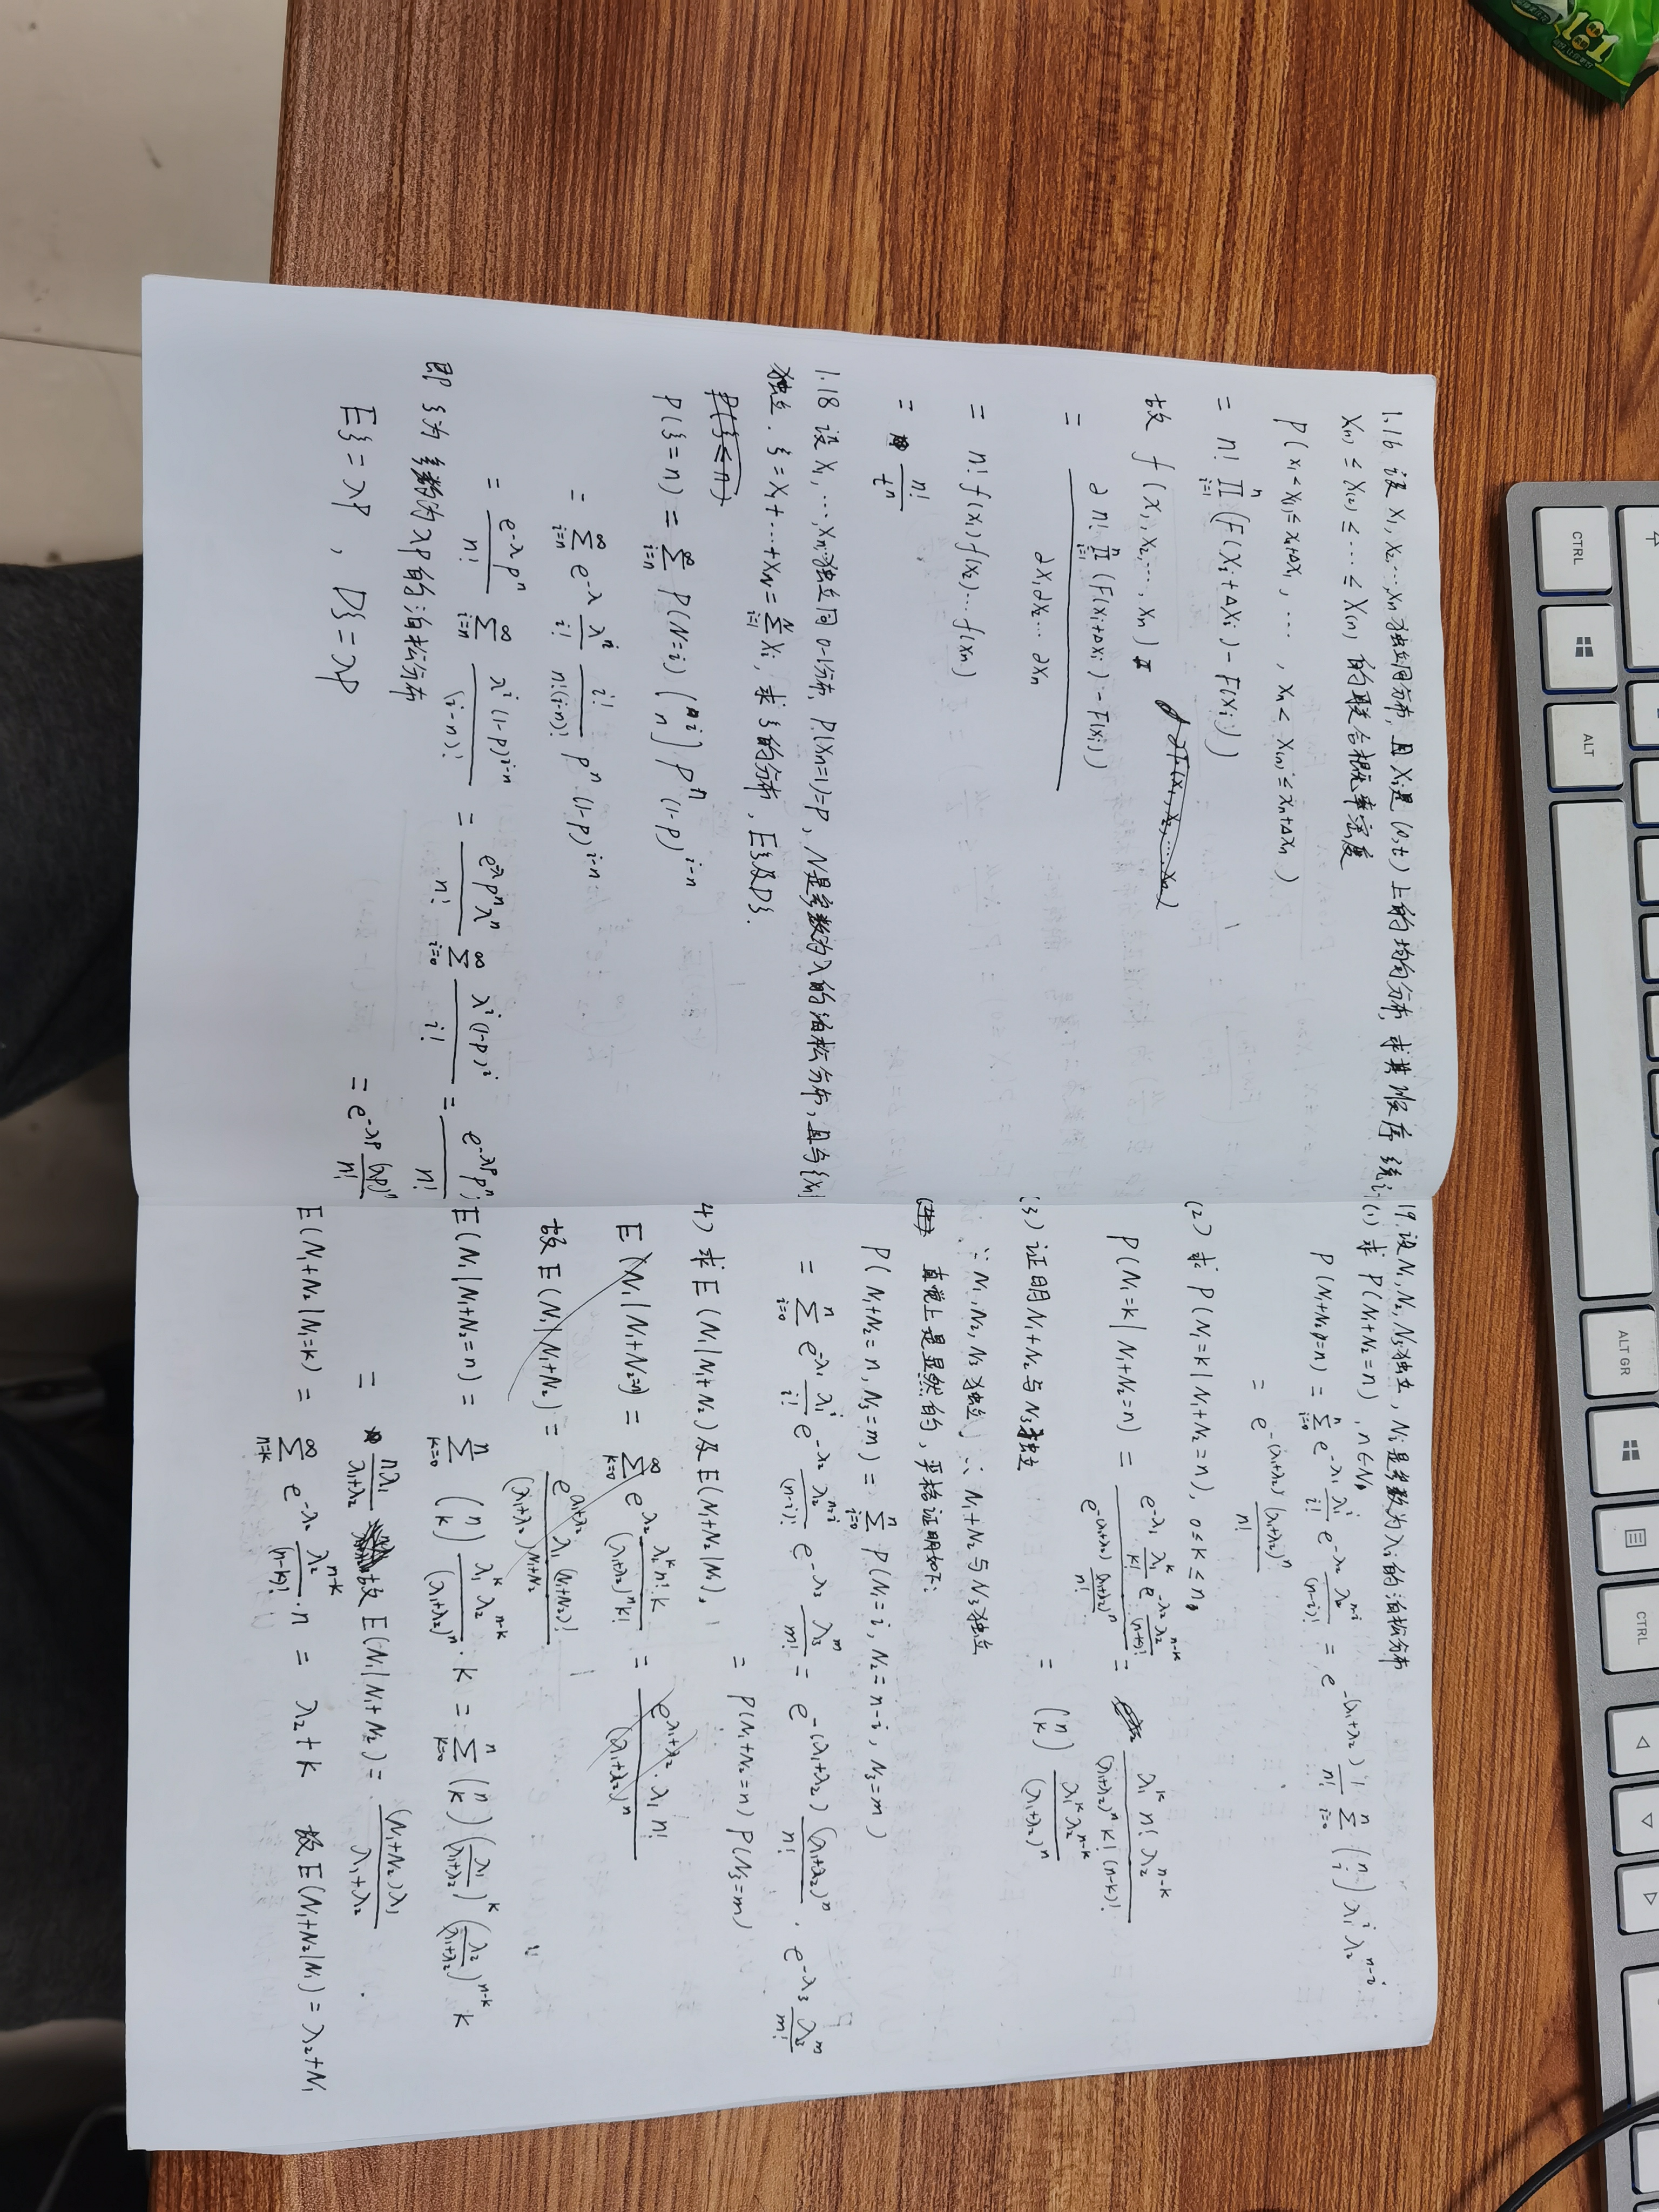 1.16 设 X₁, X₂, …, Xn 独立同分布, 且 Xi 是 (0,t) 上的均匀分布, 求其顺序统计
X₍₁₎ ≤ X₍₂₎ ≤ … ≤ X₍n₎ 的联合概率密度
P(x₁ < X₍₁₎ ≤ x₁+Δx₁, …, xn < X₍n₎ ≤ xn+Δxn)
= n! ∏_{i=1}^{n} (F(xi+Δxi) - F(xi))
故 f(x₁, x₂, …, xn)
= ∂ n! ∏_{i=1}^{n} (F(xi+Δxi) - F(xi)) / ∂x₁∂x₂…∂xn
= n! f(x₁) f(x₂)… f(xn)
= n!/tⁿ
1.18 设 X₁, …, Xn 独立同 0-1分布, P(Xn=1)=P, N是参数为λ的泊松分布, 且与{Xn}
独立. ξ = X₁+…+X_N = ∑_{i=1}^{N} Xi, 求ξ的分布, Eξ及Dξ.
P(ξ=n) = ∑_{i=n}^{∞} P(N=i) (i n) pⁿ (1-p)^{i-n}
= ∑_{i=n}^{∞} e^{-λ} λ^i/i! i!/(n!(i-n)!) pⁿ (1-p)^{i-n}
= e^{-λ}pⁿ/n! ∑_{i=n}^{∞} λ^i(1-p)^{i-n}/(i-n)! = e^{-λ}pⁿλⁿ/n! ∑_{i=0}^{∞} λ^i(1-p)^i/i! = e^{-λp}pⁿ/n!
= e^{-λp} (λp)ⁿ/n!
即 ξ为参数为λp的泊松分布
Eξ = λp , Dξ = λp
19. 设N₁, N₂, N₃独立, Ni是参数为λi的泊松分布
(1) 求 P(N₁+N₂=n), n∈N,
P(N₁+N₂=n) = ∑_{i=0}^{n} e^{-λ₁} λ₁^i/i! e^{-λ₂} λ₂^{n-i}/(n-i)! = e^{-(λ₁+λ₂)} 1/n! ∑_{i=0}^{n} (n i) λ₁^i λ₂^{n-i}
= e^{-(λ₁+λ₂)} (λ₁+λ₂)ⁿ/n!
(2) 求 P(N₁=k | N₁+N₂=n), 0≤k≤n,
P(N₁=k | N₁+N₂=n) = e^{-λ₁} λ₁^k/k! e^{-λ₂} λ₂^{n-k}/(n-k)! / e^{-(λ₁+λ₂)} (λ₁+λ₂)ⁿ/n! = λ₁^k n! λ₂^{n-k}/((λ₁+λ₂)ⁿ k! (n-k)!)
= (n k) λ₁^k λ₂^{n-k}/(λ₁+λ₂)ⁿ
(3) 证明N₁+N₂与N₃独立
∵ N₁, N₂, N₃ 独立 ∴ N₁+N₂与N₃独立
直觉上是显然的, 严格证明如下:
P(N₁+N₂=n, N₃=m) = ∑_{i=0}^{n} P(N₁=i, N₂=n-i, N₃=m)
= ∑_{i=0}^{n} e^{-λ₁} λ₁^i/i! e^{-λ₂} λ₂^{n-i}/(n-i)! e^{-λ₃} λ₃^m/m! = e^{-(λ₁+λ₂)} (λ₁+λ₂)ⁿ/n! · e^{-λ₃} λ₃^m/m!
= P(N₁+N₂=n) P(N₃=m)
4) 求 E(N₁|N₁+N₂) 及 E(N₁+N₂|N₁),
E(N₁|N₁+N₂=n) = ∑_{k=0}^{∞} e^{λ₂} λ₁^k n!·k/((λ₁+λ₂)ⁿ k!) = e^{λ₁+λ₂}·λ₁ n!/(λ₁+λ₂)ⁿ
故 E(N₁|N₁+N₂) = e^{λ₁+λ₂} λ₁ (N₁+N₂)!/(λ₁+λ₂)^{N₁+N₂}
E(N₁|N₁+N₂=n) = ∑_{k=0}^{n} (n k) λ₁^k λ₂^{n-k}/(λ₁+λ₂)ⁿ · k = ∑_{k=0}^{n} (n k) (λ₁/(λ₁+λ₂))^k (λ₂/(λ₁+λ₂))^{n-k} k
= nλ₁/(λ₁+λ₂) 故 E(N₁|N₁+N₂) = (N₁+N₂)λ₁/(λ₁+λ₂)
E(N₁+N₂|N₁=k) = ∑_{n=k}^{∞} e^{-λ₂} λ₂^{n-k}/(n-k)! · n = λ₂+k 故 E(N₁+N₂|N₁) = λ₂+N₁
CTRL
ALT
ALT GR
CTRL
181